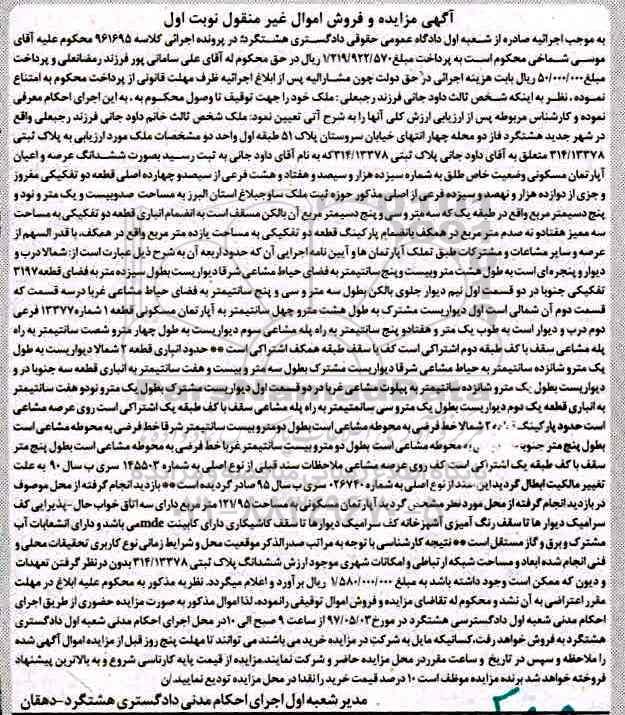 آگهی مزایده و فروش اموال غیر منقول نوبت اول
به موجب اجرائیه صادره از شعبه اول دادگاه عمومی حقوقی دادگستری هشتگرد؛ در پرونده اجرائی کلاسه ۹۶۱۶۹۵ محکوم علیه آقای
موسی شماخی محکوم است به پرداخت مبلغ ۱/۲۱۹/۹۲۲/۵۷۰ ریال در حق محکوم له آقای علی سامانی پور فرزند رمضانعلی و پرداخت
مبلغ ۵۰/۰۰۰/۰۰۰ ریال بابت هزینه اجرائی در حق دولت چون مشارالیه پس از ابلاغ اجرائیه ظرف مهلت قانونی از پرداخت محکوم به امتناع
نموده، نظر به اینکه شخص ثالث داود جانی فرزند رجبعلی : ملک خود را جهت توقیف تا وصول محکوم به ، به این اجرای احکام معرفی
نموده و کارشناس مربوطه پس از ارزیابی ارزش کلی آنها را به شرح آتی تعیین نمود: ملک شخص ثالث خانم داود جانی فرزند رجبعلی واقع
در شهر جدید هشتگرد فاز دو محله چهار انتهای خیابان سروستان پلاک ۵۱ طبقه اول واحد دو مشخصات ملک مورد ارزیابی به پلاک ثبتی
۳۱۴/۱۳۳۷۸ متعلق به آقای داود جانی پلاک ثبتی ۳۱۴/۱۳۳۷۸ که به نام آقای داود جانی به ثبت رسید بصورت ششدانگ عرصه و اعیان
آپارتمان مسکونی وضعیت خاص طلق به شماره سیزده هزار و سیصد و هفتاد و هشت فرعی از سیصدو چهارده اصلی قطعه دو تفکیکی مفروز
و جزی از دوازده هزار و نهصد و سیزده فرعی از اصلی مذکور حوزه ثبت ملک ساوجبلاغ استان البرز به مساحت صدوبیست و یک متر و نود و
پنج دسیمتر مربع واقع در طبقه یک که سه متر و سی و پنج دسیمتر مربع آن بالکن مسقف است به انضمام انباری قطعه دو تفکیکی به مساحت
سه ممیز هفتادو نه صدم متر مربع در همکف بانضمام پارکینگ قطعه دو تفکیکی به مساحت یازده متر مربع واقع در همکف، با قدر السهم از
عرصه و سایر مشاعات و مشترکات طبق تملک آپارتمان ها و آیین نامه اجرایی آن که حدود اربعه آن به شرح ذیل عبارت است از: شمالا درب و
دیوار و پنجره ای است به طول هشت متر وبیست و پنج سانتیمتر به فضای حیاط مشاعی شرقا دیواریست بطول سیزده متر به فضای قطعه ۳۱۹۷
تفکیکی جنوبا در دو قسمت اول نیم دیوار جلوی بالکن بطول سه متر و سی و پنج سانتیمتر به فضای حیاط مشاعی غربا درسه قسمت که
قسمت دوم آن شمالی است اول دیواریست مشترک به طول هشت مترو چهل سانتیمتر به آپارتمان مسکونی قطعه ۱ شماره ۱۳۳۷۷ فرعی
دوم درب و دیوار است به طوب یک متر و هفتادو پنج سانتیمتر به راه پله مشاعی سوم دیواریست به طول چهار مترو شصت سانتیمتر به راه
پله مشاعی سقف با کف طبقه دوم اشتراکی است کف با سقف طبقه همکف اشتراکی است ** حدود انباری قطعه ۲ شمالا دیواریست به طول
یک مترو شانزده سانتیمتر به حیاط مشاعی شرقا دیواریست مشترک بطول سه مترو بیست و هفت سانتیمتر به انباری قطعه سه جنوبا در و
دیواریست بطول یک مترو شانزده سانتیمتر به پیلوت مشاعی غربا در دو قسمت اول دیواریست مشترک بطول یک مترو نودو هفت سانتیمتر
به انباری قطعه یک دوم دیواریست بطول یک مترو سی سانتیمتر به راه پله مشاعی سقف با کف طبقه یک اشتراکی است روی عرصه مشاعی
است حدود پارکینگ قطعه ۲ شمالا خط فرضی به محوطه مشاعی است بطول دومترو بیست سانتیمتر شرقا خط فرضی به محوطه مشاعی است
بطول پنج متر جنوبا به محوطه مشاعی است بطول دو مترو بیست سانتیمتر غربا خط فرضی به محوطه مشاعی است بطول پنج متر
سقف با کف طبقه یک اشتراکی است کف روی عرصه مشاعی ملاحظات سند قبلی از نوع اصلی به شماره ۱۴۵۵۰۲ سری ب سال ۹۰ به علت
تغییر مالکیت ابطال گردید این سند از نوع اصلی به شماره ۰۲۶۷۴۰ سری ب سال ۹۵ صادر گردیده است ** بازدید انجام گرفته از محل موصوف
در بازدید انجام گرفته از محل مورد نظر مشخص گردید آپارتمان مسکونی به مساحت ۱۲۱/۹۵ متر مربع دارای سه اتاق خواب حال-پذیرایی کف
سرامیک دیوار ها تا سقف رنگ آمیزی آشپزخانه کف سرامیک دیوارها تا سقف کاشیکاری دارای کابینت mde می باشد و دارای انشعابات آب
مشترک و برق و گاز مستقل است ** نتیجه کارشناسی با توجه به مراتب صدرالذکر موقعیت محل و شرایط زمانی نوع کاربری تحقیقات محلی و
فنی انجام شده ابعاد و مساحت شبکه ارتباطی و امکانات شهری موجود ارزش ششدانگ پلاک ثبتی ۳۱۴/۱۳۳۷۸ بدون درنظر گرفتن تعهدات
و دیون که ممکن است وجود داشته باشد به مبلغ ۱/۵۸۰/۰۰۰/۰۰۰ ریال بر آورد و اعلام میگردد. نظر به مذکور به محکوم علیه ابلاغ در مهلت
مقرر اعتراضی به آن نشد و محکوم له تقاضای مزایده و فروش اموال توقیفی رانموده، لذا اموال مذکور به صورت مزایده حضوری از طریق اجرای
احکام مدنی شعبه اول دادگسترسی هشتگرد در مورخ ۹۷/۰۵/۰۳ از ساعت ۹ صبح الی ۱۰ در محل اجرای احکام مدنی شعبه اول دادگستری
هشتگرد به فروش خواهد رفت، کسانیکه مایل به شرکت در مزایده خرید می باشند می توانند تا مهلت پنج روز قبل از مزایده اموال آگهی شده
را ملاحظه و سپس در تاریخ و ساعت مقرر در محل مزایده حاضر و شرکت نمایند. مزایده از قیمت پایه کارشناسی شروع و به بالاترین پیشنهاد
فروخته خواهد شد برنده مزایده موظف است ۱۰ درصد قیمت خرید را نقدا در محل مزایده تودیع نمایید./ن
مدیر شعبه اول اجرای احکام مدنی دادگستری هشتگرد-دهقان